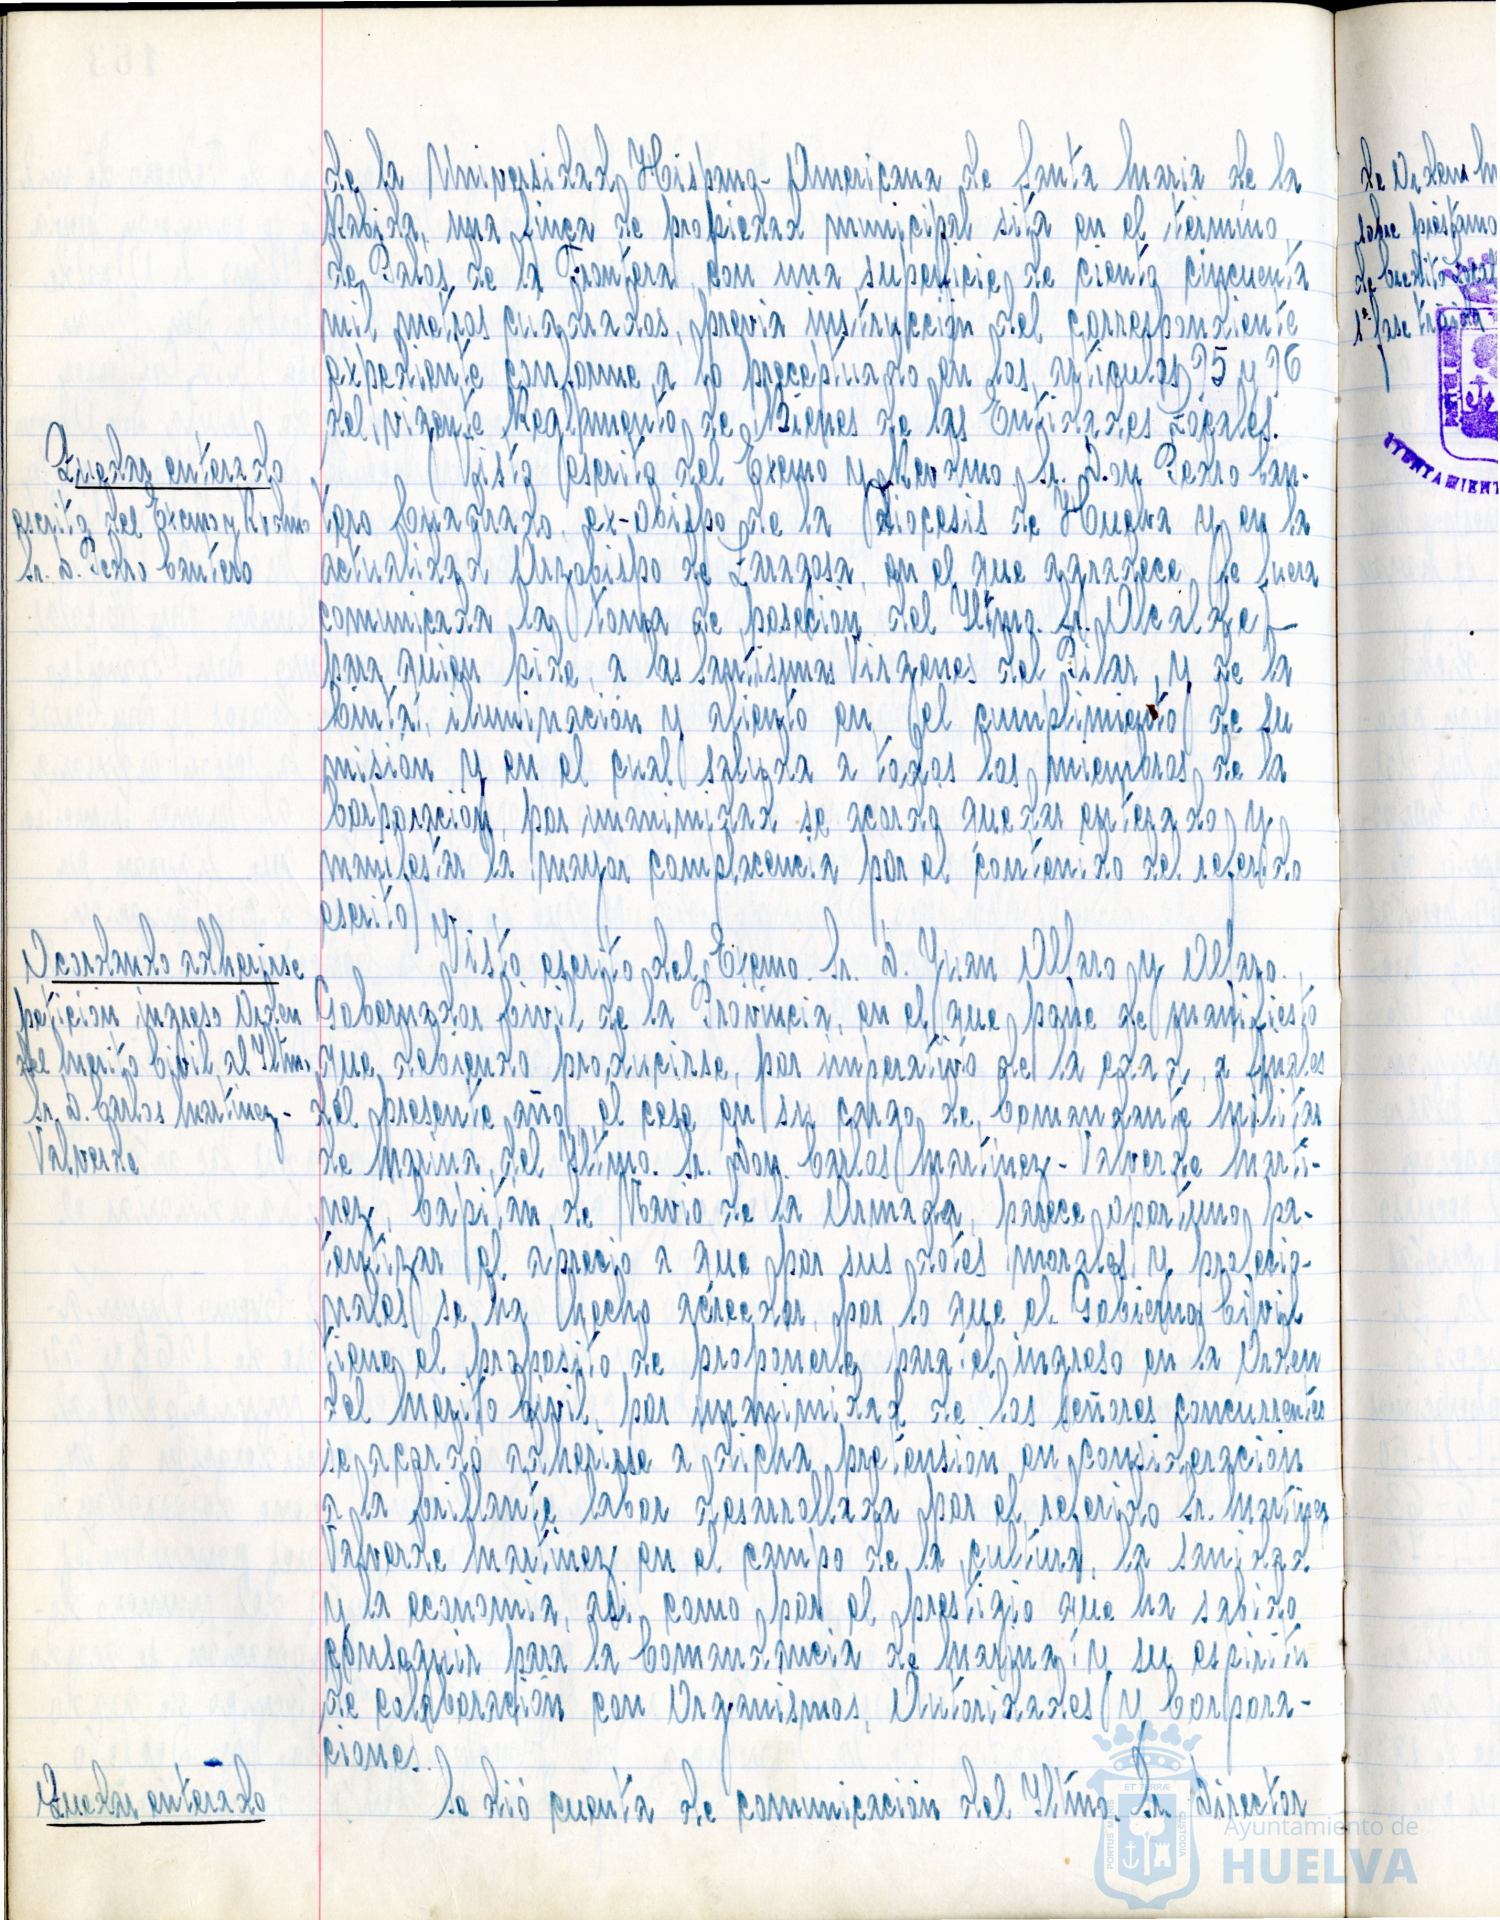 de la Universidad Hispano-Americana de Santa Maria de la
Rabida, una finca de propiedad municipal sita en el termino
de Palos de la Frontera, con una superficie de ciento cincuenta
mil metros cuadrados, previa instrucción del correspondiente
expediente conforme a lo preceptuado en los artículos 95 y 96
del vigente Reglamento de Bienes de las Entidades Locales.
Quedar enterado
escrito del Excmo y Rvdmo
Sr. D. Pedro Cantero
Visto escrito del Excmo y Revdmo Sr. Don Pedro Can-
tero Cuadrado, ex-Obispo de la Diocesis de Huelva y en la
actualidad Arzobispo de Zaragoza, en el que agradece le fuera
comunicada la toma de posecion del Iltmo. Sr. Alcalde,
para quien pide, a las Santisimas Virgenes del Pilar, y de la
Cinta, iluminación y aliento en el cumplimiento de su
misión, y en el cual saluda a todos los miembros de la
Corporación, por unanimidad se acordo quedar enterado y
manifestar la mayor complacencia por el contenido del referido
escrito.
Acordando adherirse
peticion ingreso Orden
del Merito Civil, al Iltmo.
Sr. D. Carlos Martinez-
Valverde
Visto escrito del Excmo. Sr. D. Juan Alfaro y Alfaro.,
Gobernador Civil de la Provincia, en el que pone de manifiesto
que, debiendo producirse, por imperativo de la edad, a finales
del presente año, el cese en su cargo de Comandante Militar
de Marina, del Iltmo. Sr. Don Carlos Martinez-Valverde Marti-
nez, Capitan de Navio de la Armada, parece oportuno pa-
tentizar el aprecio a que por sus dotes morales y profecio-
nales se ha hecho acreedor, por lo que el Gobierno Civil
tiene el proposito de proponerle para el ingreso en la Orden
del Merito Civil, por unanimidad de los señores concurrentes
se acordó adherirse a dicha pretensión en consideración
a la brillante labor desarrollada por el referido Sr. Martinez
Valverde Martinez en el campo de la cultura, la sanidad
y la economia, asi como por el prestigio que ha sabido
conseguir para la Comandancia de Marina y su espiritu
de colaboración con Organismos, Autoridades y Corpora-
ciones.
Quedar enterado
Se dió cuenta de comunicación del Iltmo. Sr. Director
de Orden
sobre préstamo
AYUNTAMIENT
ET TERRÆ
PORTUS MARIS
CUSTODIA
Ayuntamiento de
HUELVA